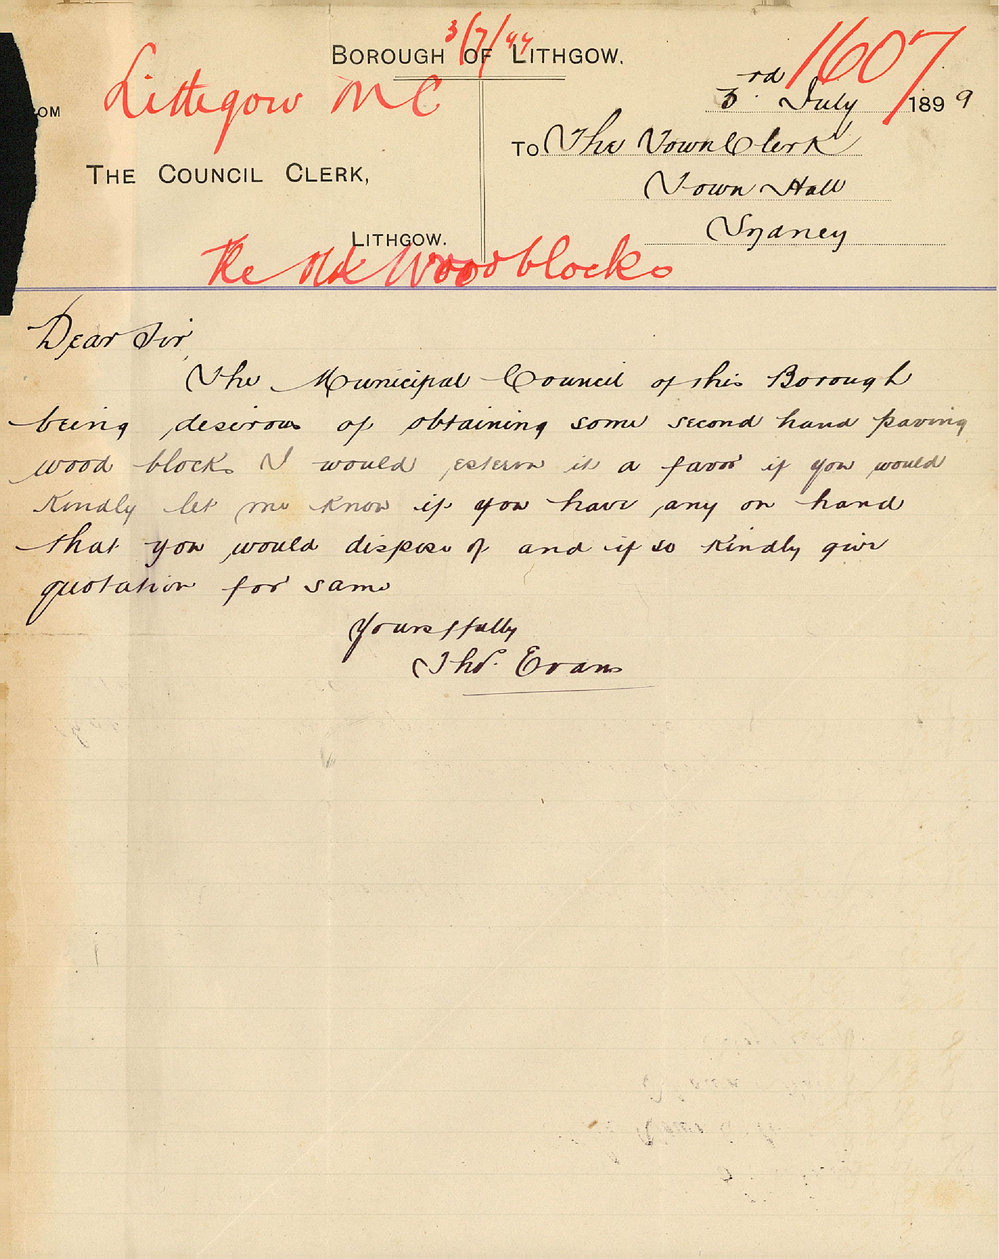 3/7/99
BOROUGH OF LITHGOW.
1607
Lithgow M C
3rd July 1899
OM
TO The Town Clerk
THE COUNCIL CLERK,
Town Hall
Sydney
LITHGOW.
Re Old Woodblocks
Dear Sir
The Municipal Council of this Borough
being desirous of obtaining some second hand paving
wood blocks I would esteem it a favor if you would
kindly let me know if you have any on hand
that you would dispose of and if so kindly give
quotation for same
Yours ffully
Thos. Evans